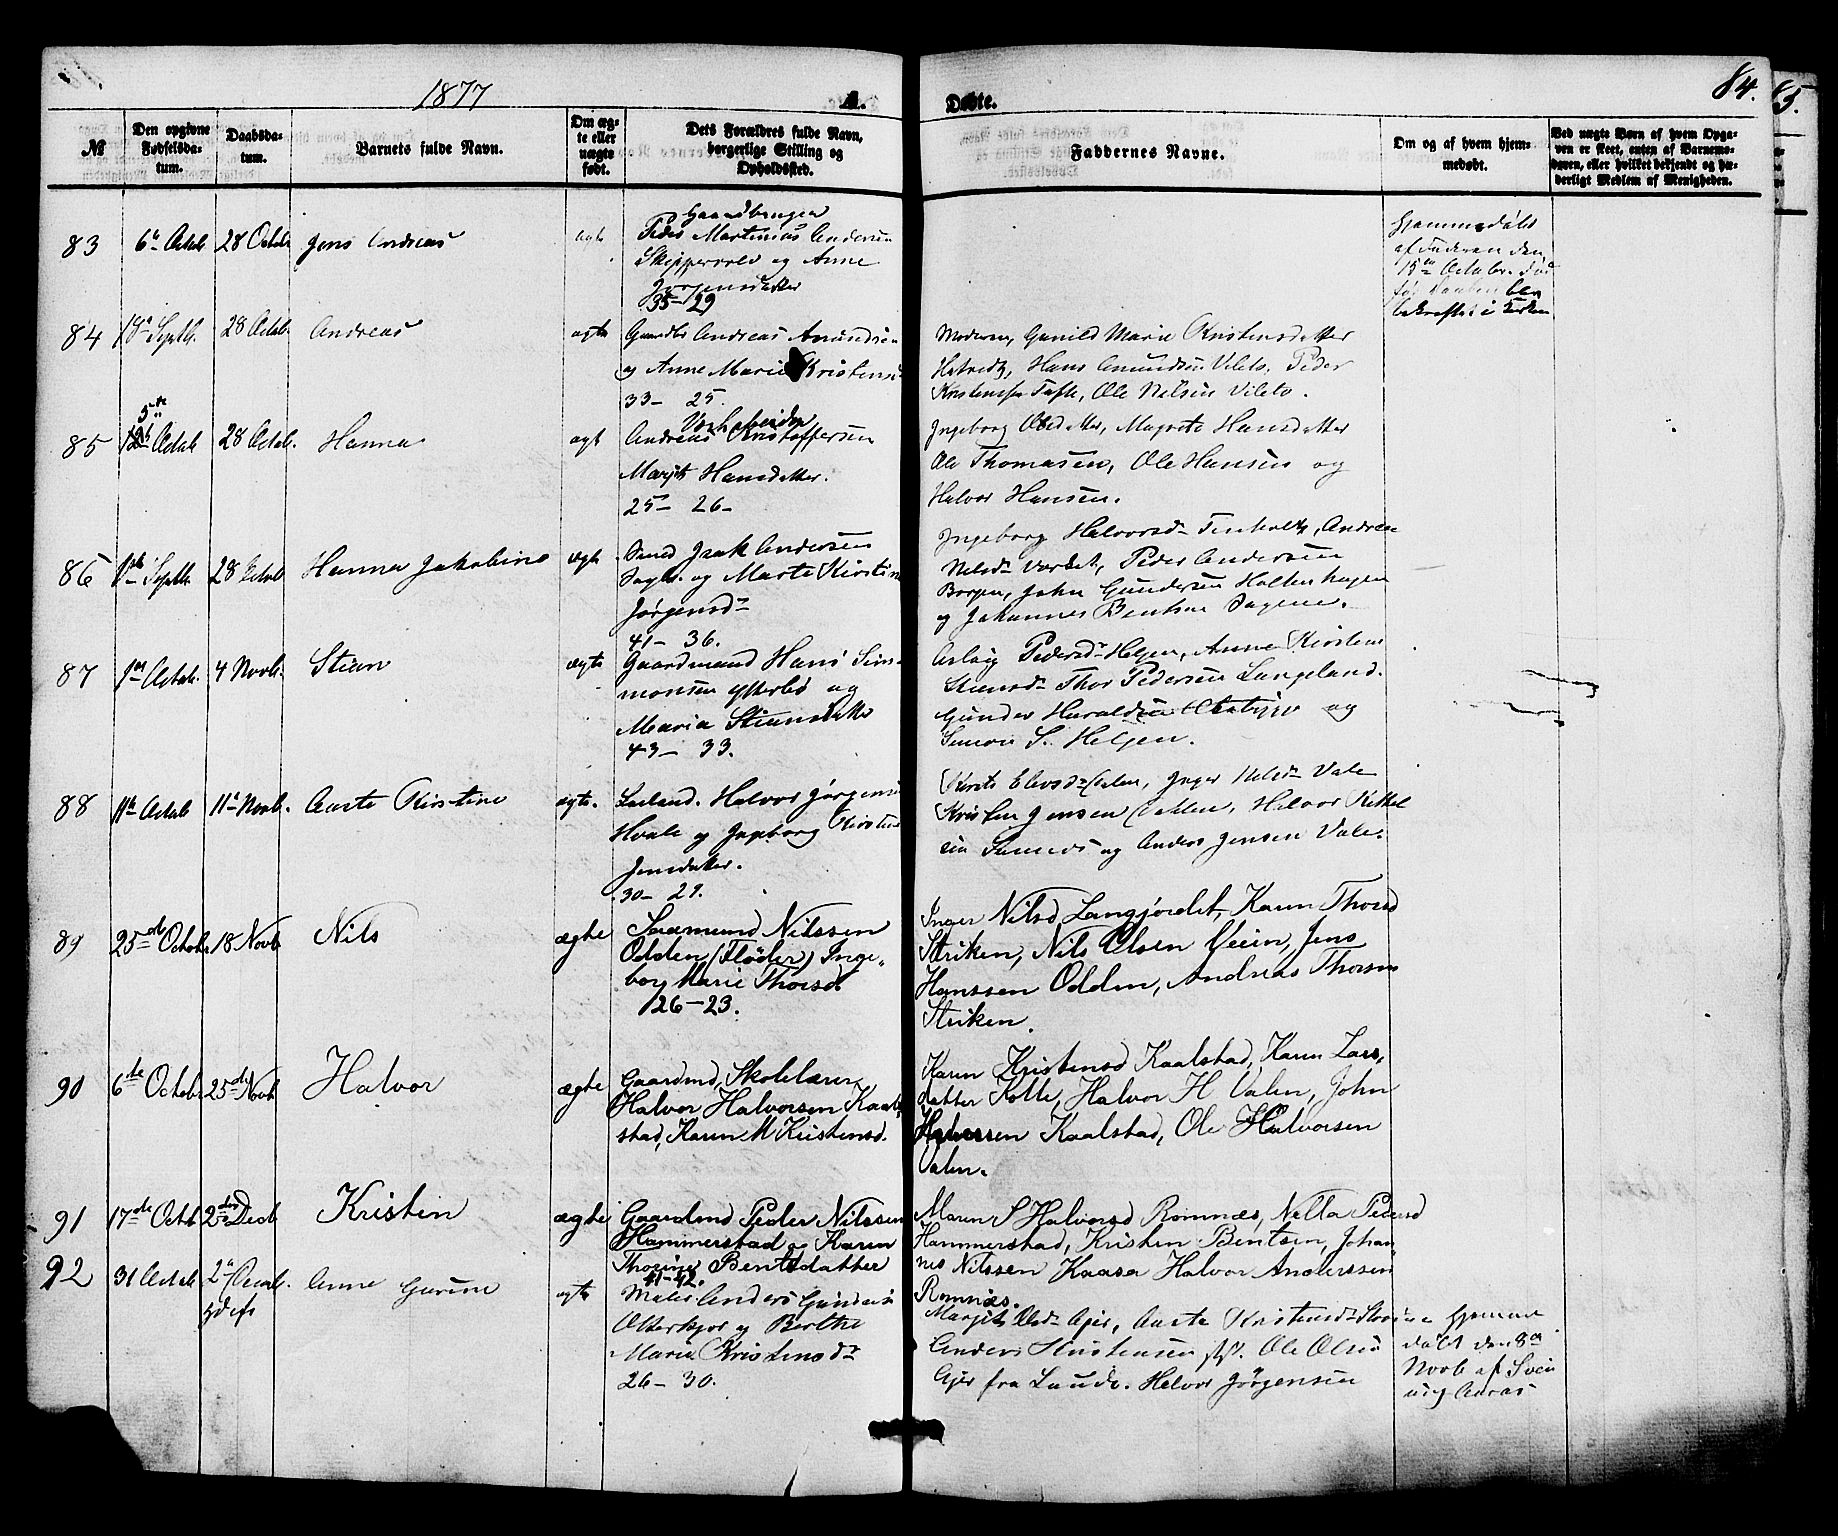 1877
1.
Døbte.
84.
85.
№
Den opgivne Fødselsdatum.
Daabsdatum.
Barnets fulde Navn.
Om ægte eller uægte født.
Dets Forældres fulde Navn, borgerlige Stilling og Opholdssted.
Faddernes Navne.
Om og af hvem hjemmedøbt.
Ved uægte Børn af hvem Opgaven er skeet, enten af Barnemoderen, eller hvilket bekjendt og hæderligt Medlem af Menigheden.
83 6te Octob 28 Octobr Jens Andreas ægte
Gaardbruger
Peder Martinius Andersen
Skippervold og Anne
Jørgensdatter
35-29
Hjemmedøbt
af Faderen den
15de Octobr.
blev
bekræftet i Kirken
84 Septb. 28 Octob. Andreas ægte
Gaardbr Andreas Amundsen
og Anne Marie Kristensd
33- 25.
Moderen, Gunild Marie Kristensdatter
Hans Amundsen Vileto, Peder
Kristensen Tufte, Ole Nilsen Vileto.
85 5te Octob 28 Octob. Hanna ægt
Andreas Kristoffersen
Margit Hansdatter.
25- 26-
Ingeborg Olsdatter, Magrete Hansdatter
Ole Thomasen, Ole Hansen og
Halvor Hansen.
86 Septb. 28 Octob Hanna Jakobine ægte
Isak Andersen
og Marte Kirstine
Jørgensdr
41- 36.
Ingeborg Halvorsdr Andrea
Nelsdr Peder Andersen
Borgen, John Gundersen Holtenhagen
og Johannes Bentsen Sagene.
87 1ste Octob. 4 Novb. Stian ægte
Gaardmand Hans Simonsen
ytterbø og
Maria Stiansdatter
43- 33.
Aslaug Pedersdr Helgen, Anne Kirstine
Stiansdr Thor Pedersen Langeland.
Gunder Haraldsen og
Simon S. Helgen.
88 11te Octob 11te Novb. Aaste Kirstine ægte.
Leiland. Halvor Jørgensen
Hvale og Ingeborg Kirstine
Jensdatter.
30- 29.
Kirsti Elevsdr Valen, Inger Nelsdr Vale
Kristen Jensen Valen, Halvor Kittel
sen og Anders Jensen Vale.
89 25de Octobr 18 Novb Nils ægte
Saamund Nilssen
Odden (Fløder) Inge-
borg Marie Thorsd.
26-23.
Inger Nilsd Langjordet, Karen Thorsd
Striken, Nils Olsen Veien, Jens
Hanssen Odden, Andreas Thorsen
Striken.
90 6te Octobr 25de Novb Halvor ægte
Gaardmd, Skolelærer
Halvor Halvorsen Kaal-
stad, Karen M Kristensd.
Karen Kristensd Kaalstad, Karen Lars-
datter Kolle, Halvor H Valen, John
Halvorsen Kaalstad, Ole Halvorsen
Valen.
91 17de Octb 2den Decb Kristen ægte
Gaardmd Peder Nilssen
Hammerstad og Karen
Thorine Bentsdatter
41-42.
Maren S Halvorsd Romnæs, Nella Pedersd
Hammerstad, Kristen Bentsen, Johan
nes Nilssen Kaasa Halvor Anderssen
Romnæs.
92 31 Octob 2de Decb. Anne Gurine ægte
Maler Anders Gundersen
Otterkjær og Berthe
Maria Kristensdr
26- 30.
Margit Olsdr Ajer, Aaste Kristensdr
Anders Kristensen Ole Olsen
Ajer fra Lunde. Halvor Jørgensen
Hjemme
døbt den 8de
Novb af Svein